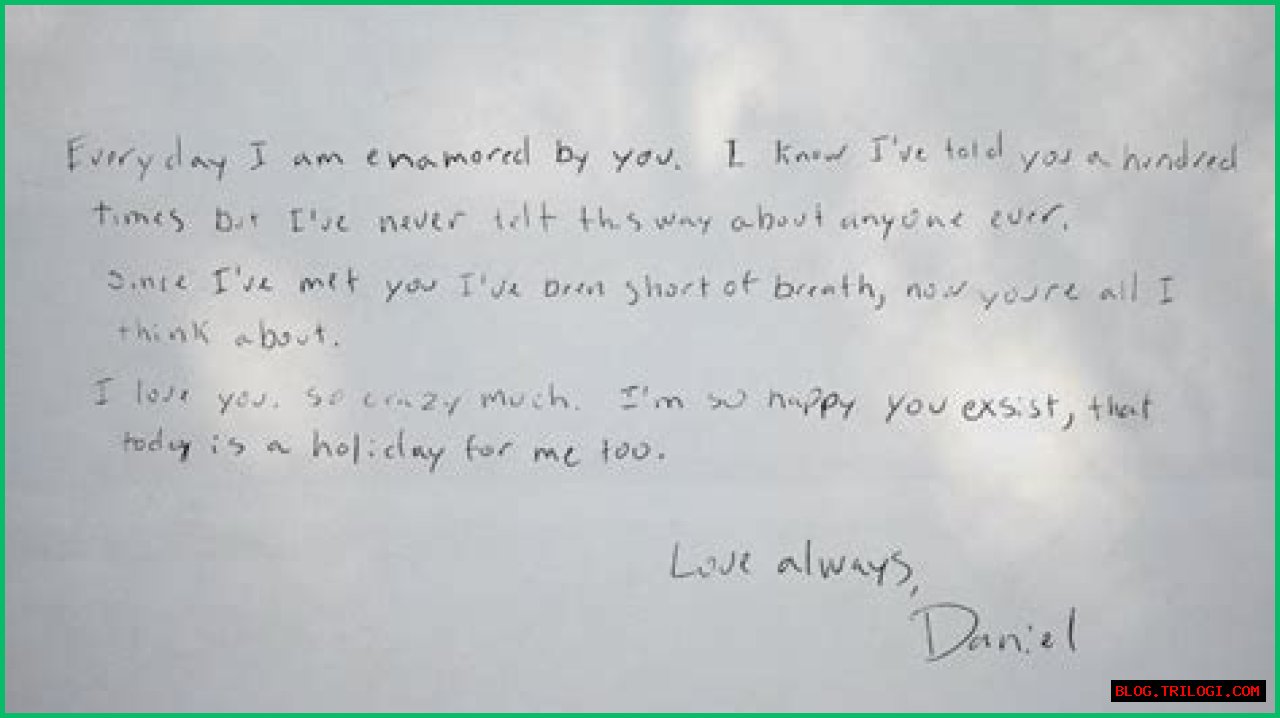 Everyday I am enamored by you. I know I've told you a hundred
times but I've never felt this way about anyone ever.
Since I've met you I've been short of breath, now you're all I
think about.
I love you. so crazy much. I'm so happy you exsist, that
today is a holiday for me too.
Love always,
Daniel
BLOG.TRILOGI.COM